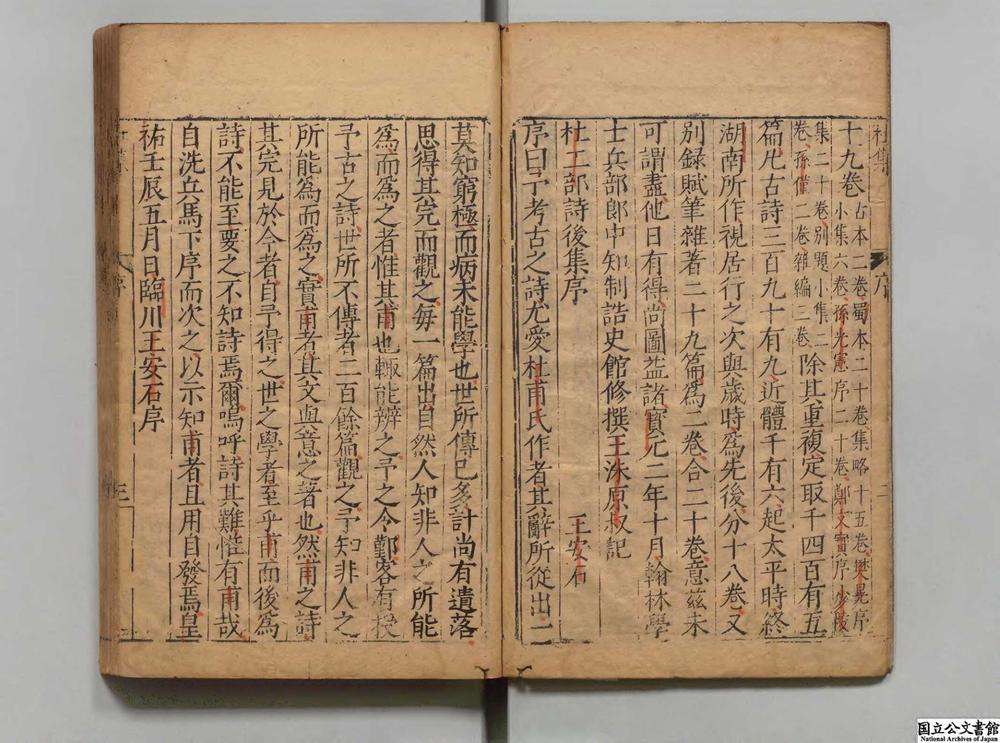 杜集 序
十九卷
古本二卷蜀本二十卷集略十五卷樊晃序
小集六卷孫光憲序二十卷鄭文寳序少陵
集二十卷别題小集二
卷孫僅一卷雜編三卷
除其重複定取千四百有五
篇凡古詩三百九十有九近體千有六起太平時終
湖南所作視居行之次與歲時爲先後分十八卷又
别録賦筆雜著二十九篇爲二卷合二十卷意兹未
可謂盡他日有得尚圖益諸寳元二年十月翰林學
士兵部郎中知制誥史館修撰王洙原叔記
杜工部詩後集序 王安石
序曰予考古之詩尤愛杜甫氏作者其辭所從出一
莫知窮極而病未能學也世所傳已多計尚有遺落
思得其完而觀之每一篇出自然人知非人之所能
爲而爲之者惟其甫也輒能辨之予之令鄞客有授
予古之詩世所不傳者二百餘篇觀之予知非人之
所能爲而爲之實甫者其文與意之著也然甫之詩
其完見於今者自予得之世之學者至乎甫而後爲
詩不能至要之不知詩焉爾嗚呼詩其難惟有甫哉
自洗兵馬下序而次之以示知甫者且用自發焉皇
祐壬辰五月日臨川王安石序
三
国立公文書館
National Archives of Japan